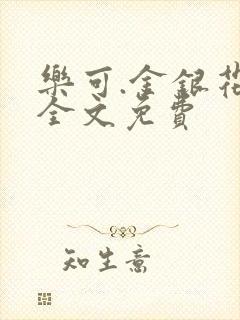 樂可.金銀花
全文免費
知生意